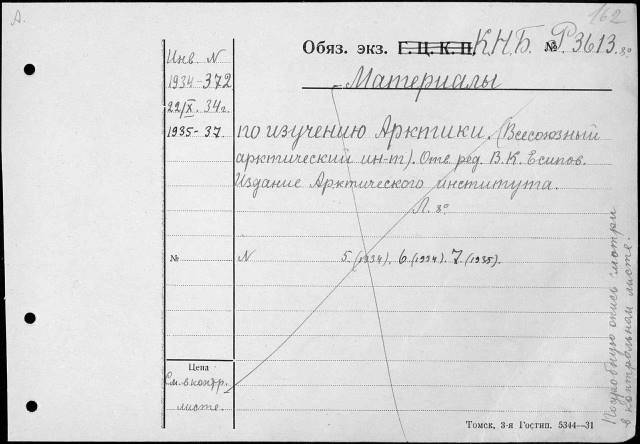 А.
162
Обяз. экз. Г. Ц. К. П. К.Н.Б. № Р3613. 8°
Инв. N
1934-372
22/X. 34г.
1935-37.
Материалы
по изучению Арктики. (Всесоюзный
арктический ин-т). Отв. ред. В.К. Есипов.
Издание Арктического института.
Л. 8°
№ N 5.(1934). 6.(1934). 7.(1935).
Цена
См. в контр.
листе.
Подробную опись смотри
в контрольном листе.
Томск, 3-я Гостип. 5344—31